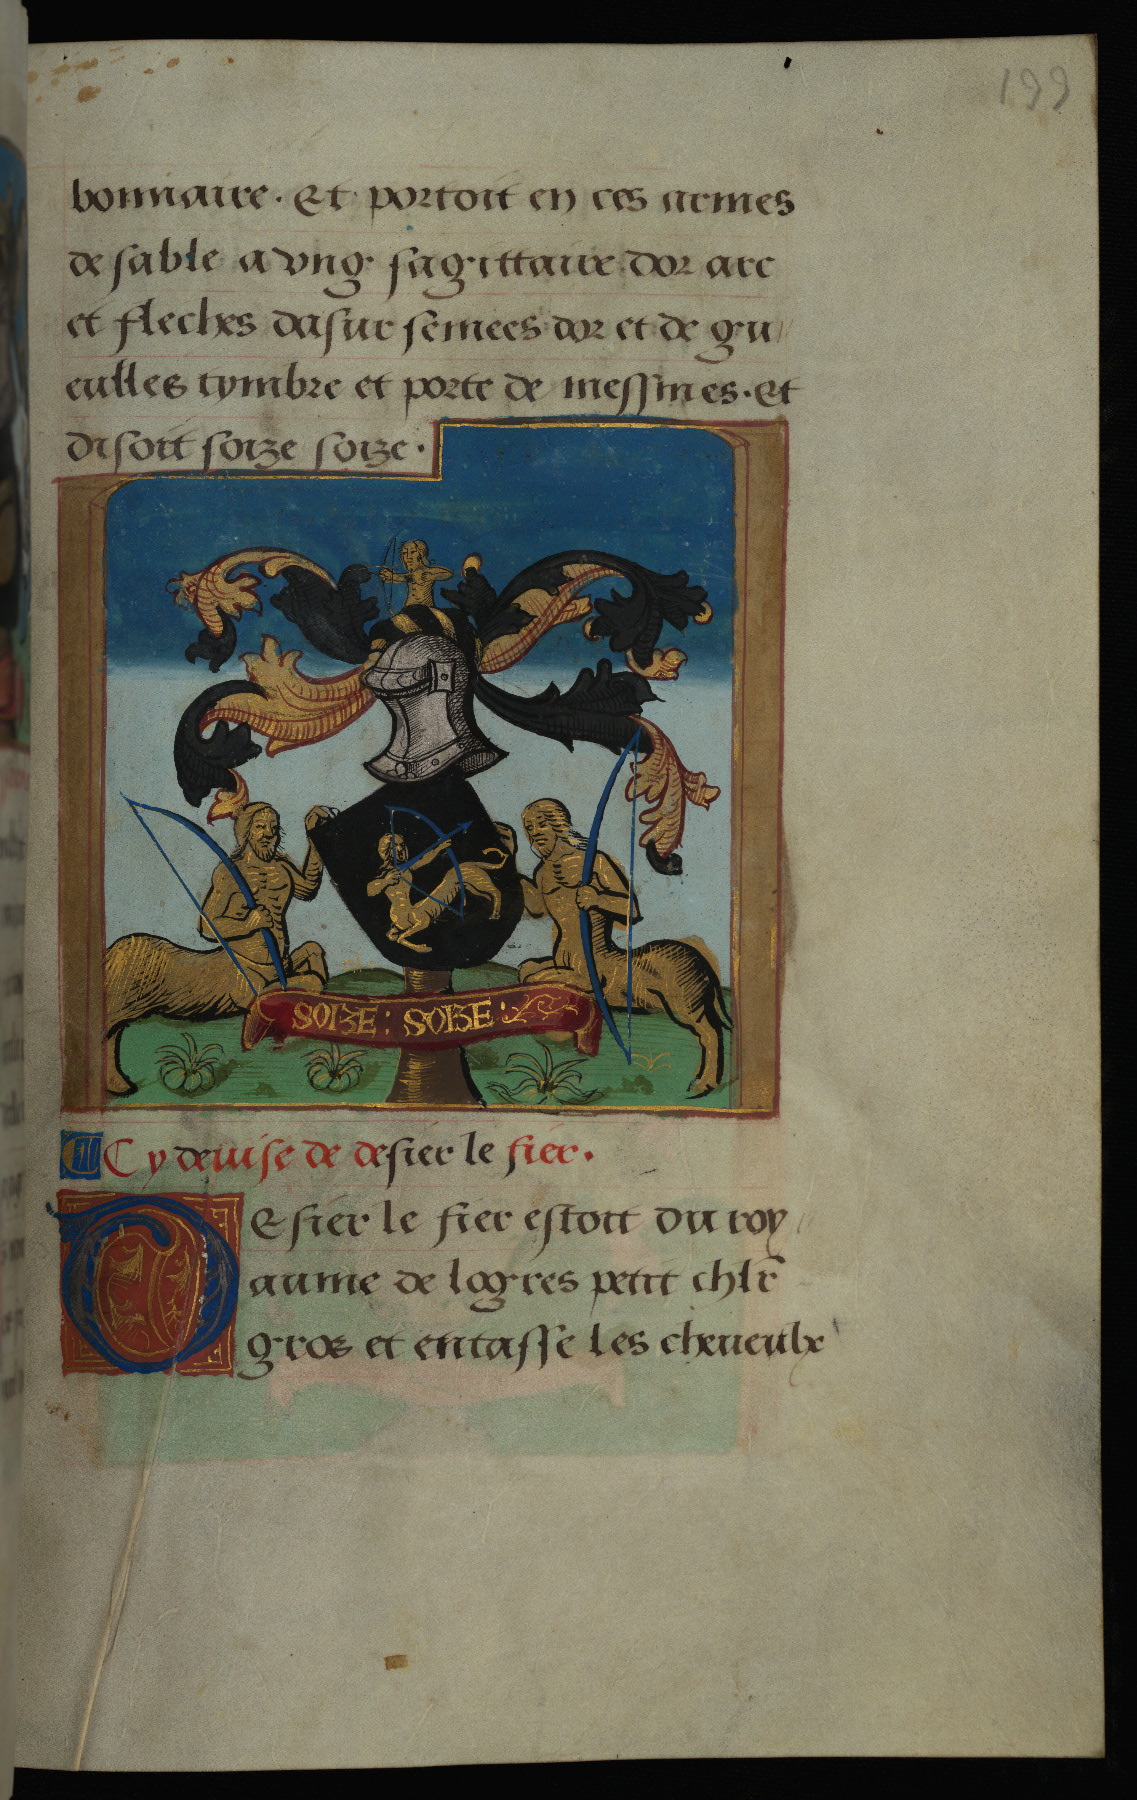 199
bonnaire. Et portoit en ces armes
de sable a vng sagittaire dor arc
et fleches dasur semees dor et de gu
eulles tymbre et porte de mesmes. Et
disoit soize soize.
SOIZE : SOIZE :
Cy deuise de desier le fier.
Desier le fier estoit du roy
aume de logres petit chlr̃
gros et entasse les cheueulx